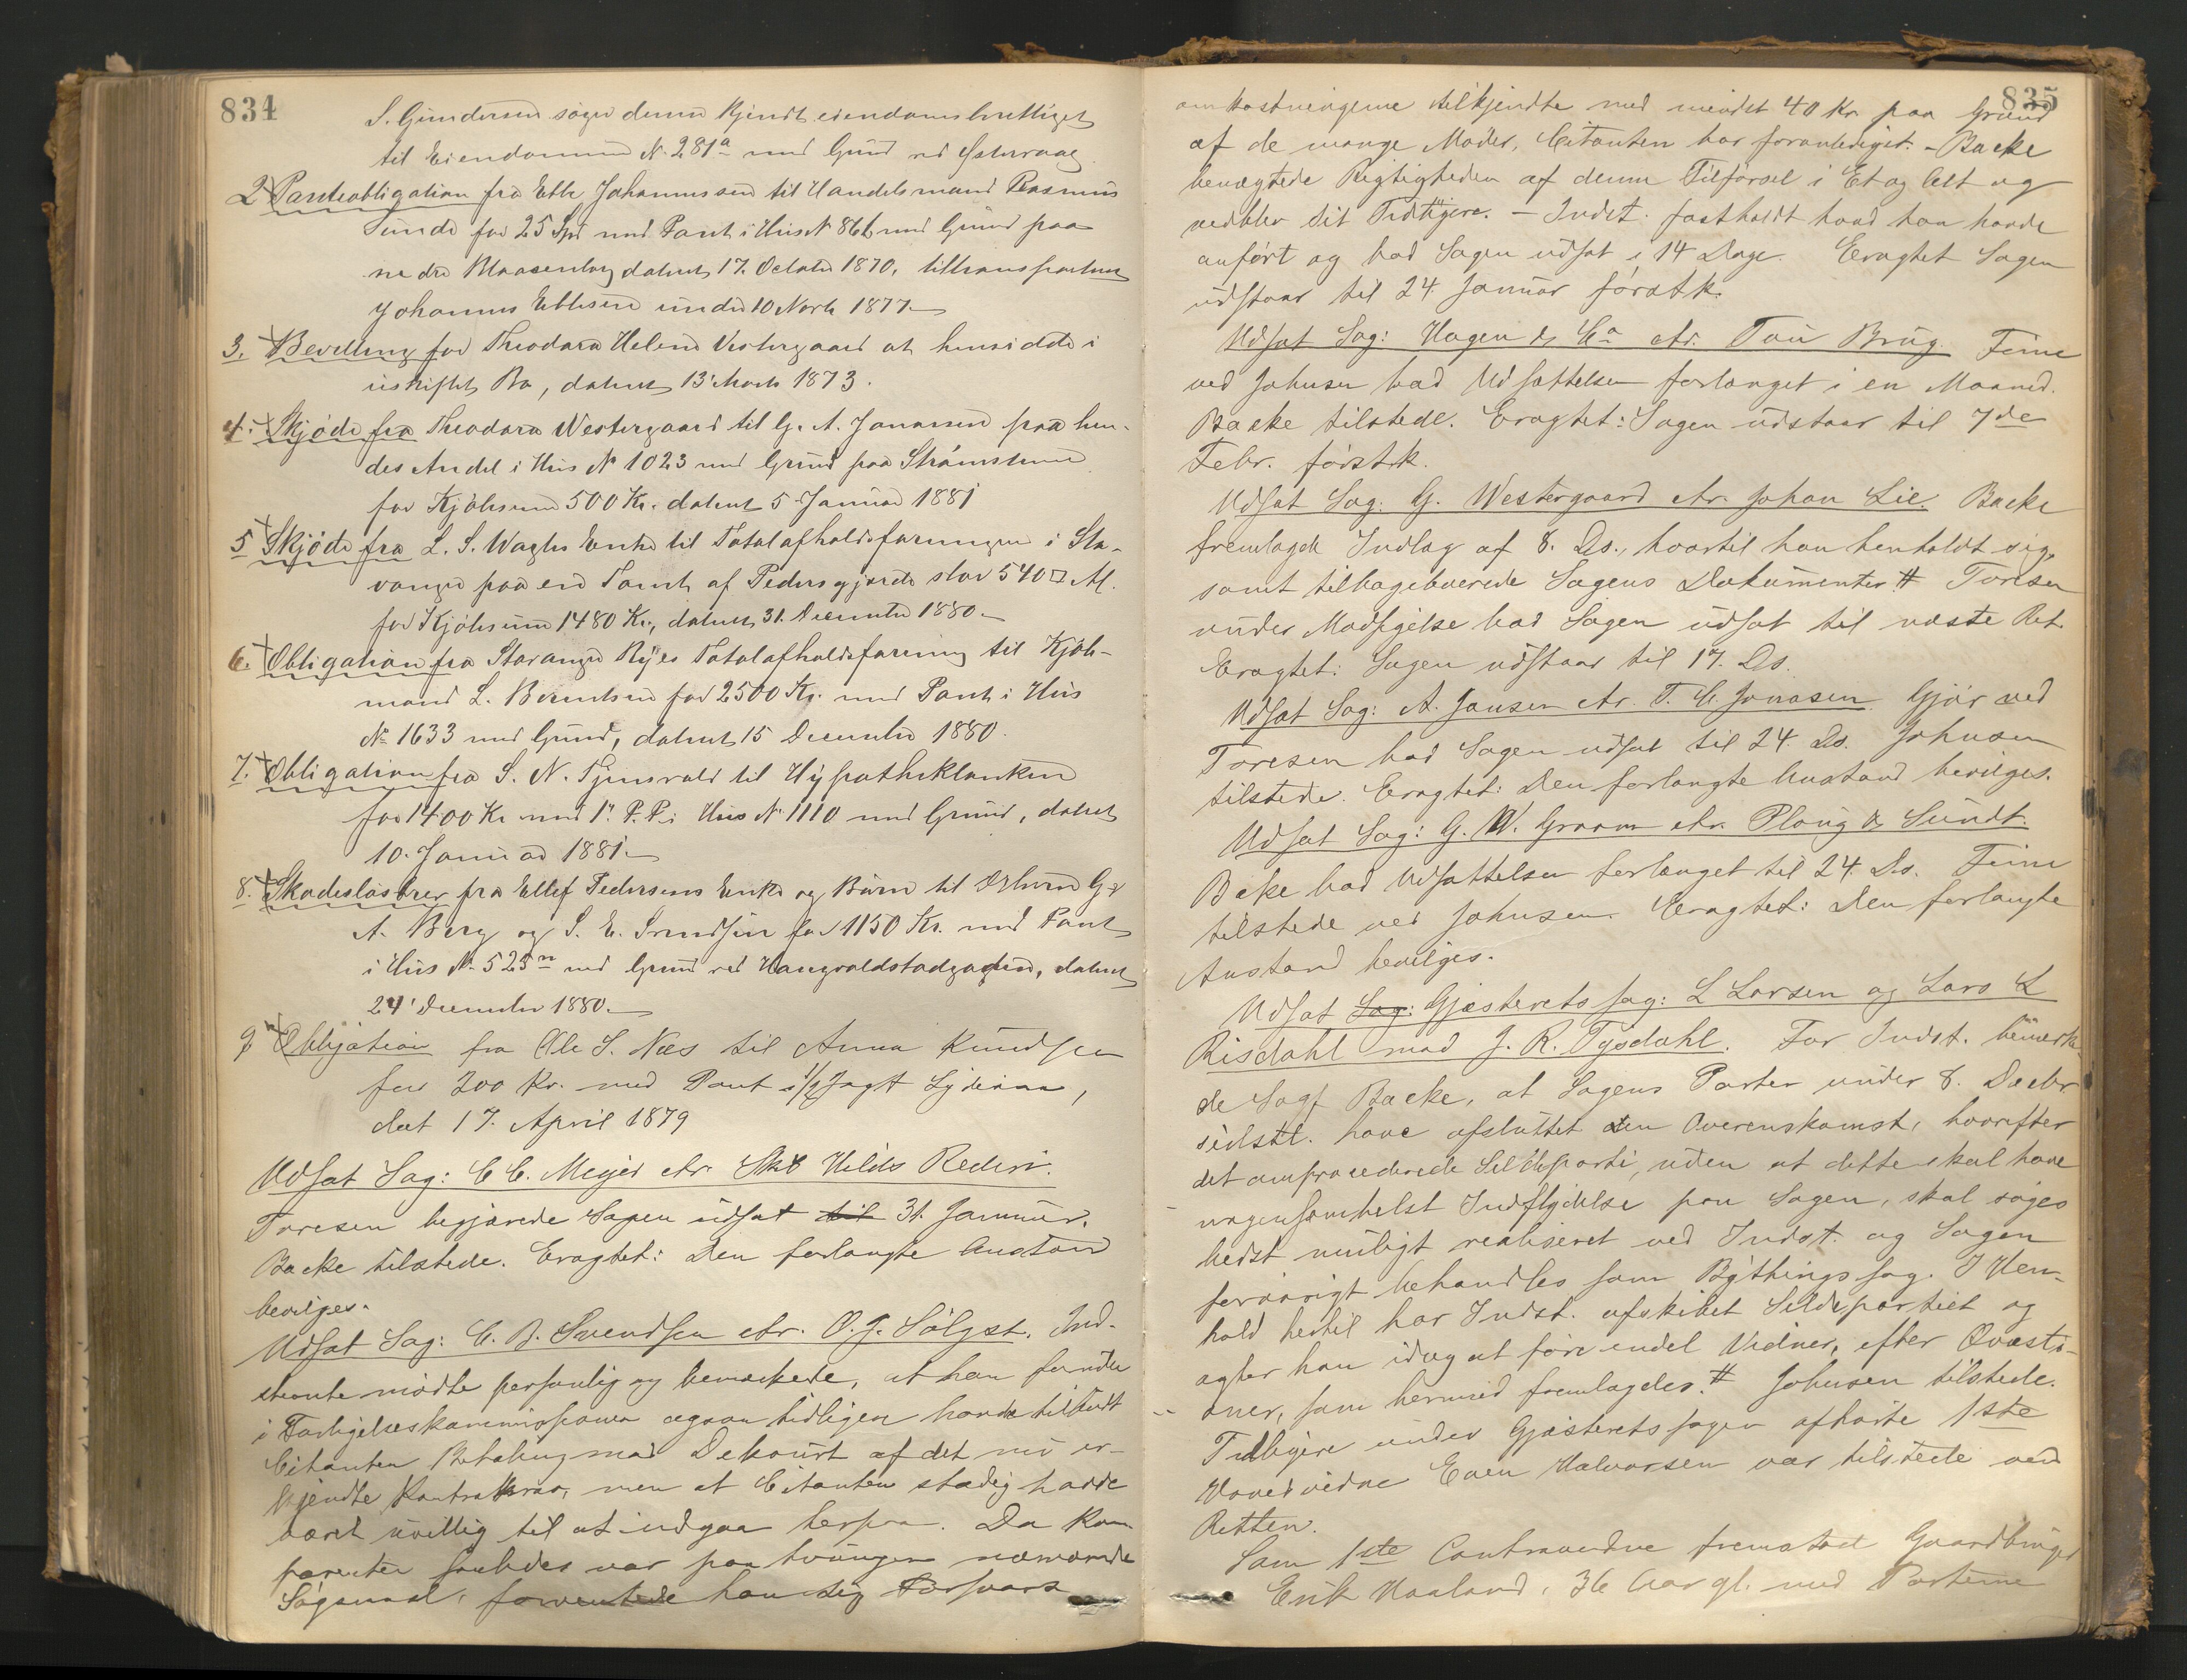 834
S. Gundersen søges denne kjendt eiendomsberettiget
til Eiendommen N. 281a med Grund ved Østervaag
2 Panteobligation fra Ebbe Johannessen til Handelsmand Rasmus
Sunde for 25 Spd med Pant i Hus N 866 med Grund paa
nedre Blaasenborg datert 17. October 1870, tiltransporteret
Johannes Ebbesen under 10 Novbr 1877.
3. Bevilling for Theodora Helene Vestergaard at hensidde i
uskiftet Bo, datert 13 Marts 1873.
4. Skjöde fra Theodora Westergaard til G. A. Jonassen paa hen-
des Andel i Hus N 1023 med Grund paa Strömstenen
for Kjöbesum 500 Kr. datert 5 Januar 1881
5 Skjöde fra L. S. Wagles Enke til Totalafholdsforeningen i Sta-
vanger paa en Tomt af Pedersgjerde stor 540 □ Al.
for Kjöbesum 1480 Kr., datert 31. December 1880.
6. Obligation fra Stavanger Byes Totalafholdsforening til Kjöb-
mand L. Berentsen for 2500 Kr. med Pant i Hus
No 1633 med Grund, datert 15 December 1880.
7. Obligation fra S. N. Tjensvold til Hypothekbanken
for 1400 Kr med 1. P. P. i Hus N 1110 med Grund, datert
10. Januar 1881.
8. Skadeslösbrev fra Ellef Pedersens Enke og Börn til
A. Berg og S. E. Svendsen for 1150 Kr. med Pant
i Hus N. 525n med Grund ved Haugvaldstadgaden, datert
24 December 1880.
9 Obligation fra Ole S. Næs til Anna Knudsen
for 200 Kr. med Pant i 1/2 Jagt Lydiana,
dat 17. April 1879
Udsat Sag: C. C. Meyer ctr. Skb Hilds Rederi.
Toresen begjærede Sagen udsat til 31. Januar.
Backe tilstede. Eragtet: Den forlangte Anstand
bevilges.
Udsat Sag: C. B. Svendsen ctr. O. J. Sölgst. Ind-
stevnte mödte personlig og bemærkede, at han
i Forligelseskommissionen ogsaa tidligere havde tilbudt
Citanten Betaling mod Dekourt af det nu er-
kjendte Kontrakrav, men at Citanten stadig havde
været uvillig til at indgaa herpaa. Da Kom-
parenten saaledes var paatvungen nærværende
Sögsmaal, forventede han sig Forsvars
835
omkostningerne tilkjendte med mindst 40 Kr. paa Grund
af de mange Möder, Citanten har foranlediget. - Backe
benægtede Rigtigheden af denne Tilförsel i Et og Alt og
vedblev sit Tidligere. - Indst. fastholdt hvad han havde
anfört og bad Sagen udsat i 14 Dage. Eragtet Sagen
udstaar til 24 Januar förstk.
Udsat Sag: Hagen & Co ctr. Tou Brug. Feine
ved Johnsen bad Udsættelsen forlænget i en Maaned.
Backe tilstede. Eragtet: Sagen udstaar til 7de
Febr. förstk.
Udsat Sag: G. Westergaard ctr. Johan Lie. Backe
fremlagde Indlæg af 8. Ds., hvortil han henholdt sig,
samt tilbageleverede Sagens Dokumenter # Toresen
under Modsigelse bad Sagen udsat til næste Ret.
Eragtet: Sagen udstaar til 17. Ds.
Udsat Sag: A. Jansen ctr. T. C. Jonasen Gjör ved
Toresen bad Sagen udsat til 24. Ds. Johnsen
tilstede. Eragtet: Den forlangte Anstand bevilges.
Udsat Sag: G. W. Graam ctr. Ploug & Sundt.
Backe bad Udsættelsen forlænget til 24. Ds. Feine
tilstede ved Johnsen. Eragtet: Den forlangte
Anstand bevilges.
Udsat Sag: Gjæsteretssag: L Larsen og Lars L
Risdahl mod J. R. Tysdahl. For Indst. bemærke-
de Sagf Backe, at Sagens Parter under 8. Decbr.
sidstl. have afsluttet den Overenskomst, hvorefter
det omprocederede Sildeparti, uden at dette skal have
nogensomhelst Indflydelse paa Sagen, skal söges
bedst muligt realiseret ved Indst. og Sagen
forövrigt behandles som Bythingssag. I Hen-
hold hertil har Indst. afskibet Sildepartiet og
agter han idag at före endel Vidner, efter Qvæsti-
oner, som hermed fremlagdes. # Johnsen tilstede.
Tidligere under Gjæsteretssagen afhörte 1ste
Hovedvidne Even Halvorsen var tilstede ved
Retten.
Som 1ste Contravidne fremstod Gaardbruger
Erik Haaland, 36 Aar gl. med Parterne